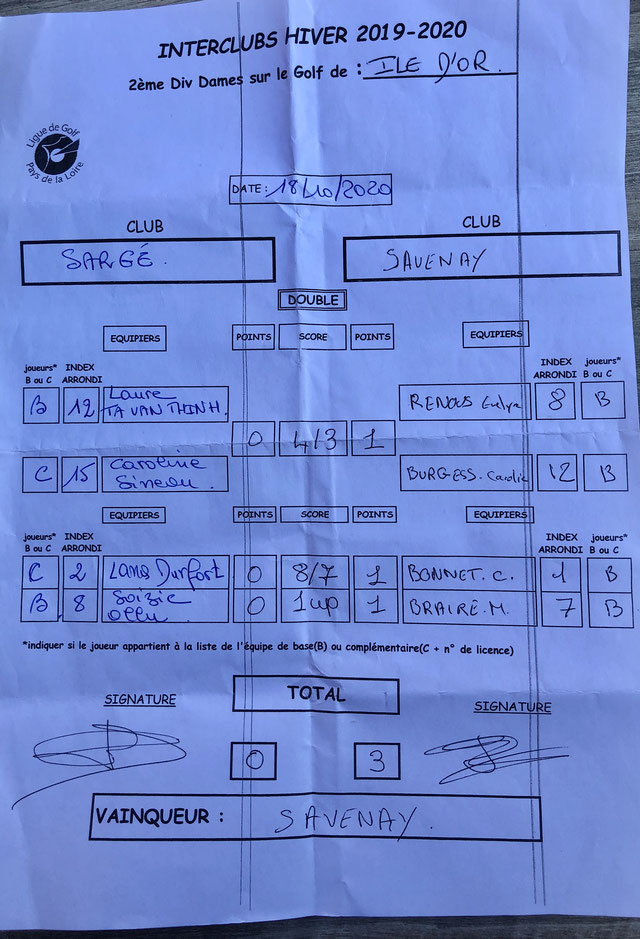 INTERCLUBS HIVER 2019-2020
2ème Div Dames sur le Golf de : ILE D'OR.
Ligue de Golf
Pays de la Loire
DATE : 18/10/2020
CLUB CLUB
SARGÉ. SAVENAY
DOUBLE
EQUIPIERS POINTS SCORE POINTS EQUIPIERS
joueurs* INDEX INDEX joueurs*
B ou C ARRONDI ARRONDI B ou C
B 12 Laure RENOUS 8 B
TA VAN THINH.
0 4/3 1
C 15 Caroline BURGESS. 12 B
Sineau.
EQUIPIERS POINTS SCORE POINTS EQUIPIERS
joueurs* INDEX INDEX joueurs*
B ou C ARRONDI ARRONDI B ou C
C 2 Lana Durfort 0 8/7 1 BONNET. C. 1 B
B 8 Soizic 0 1up 1 BRAIRÉ. M. 7 B
*indiquer si le joueur appartient à la liste de l'équipe de base(B) ou complémentaire(C + n° de licence)
SIGNATURE TOTAL SIGNATURE
0 3
VAINQUEUR : SAVENAY.